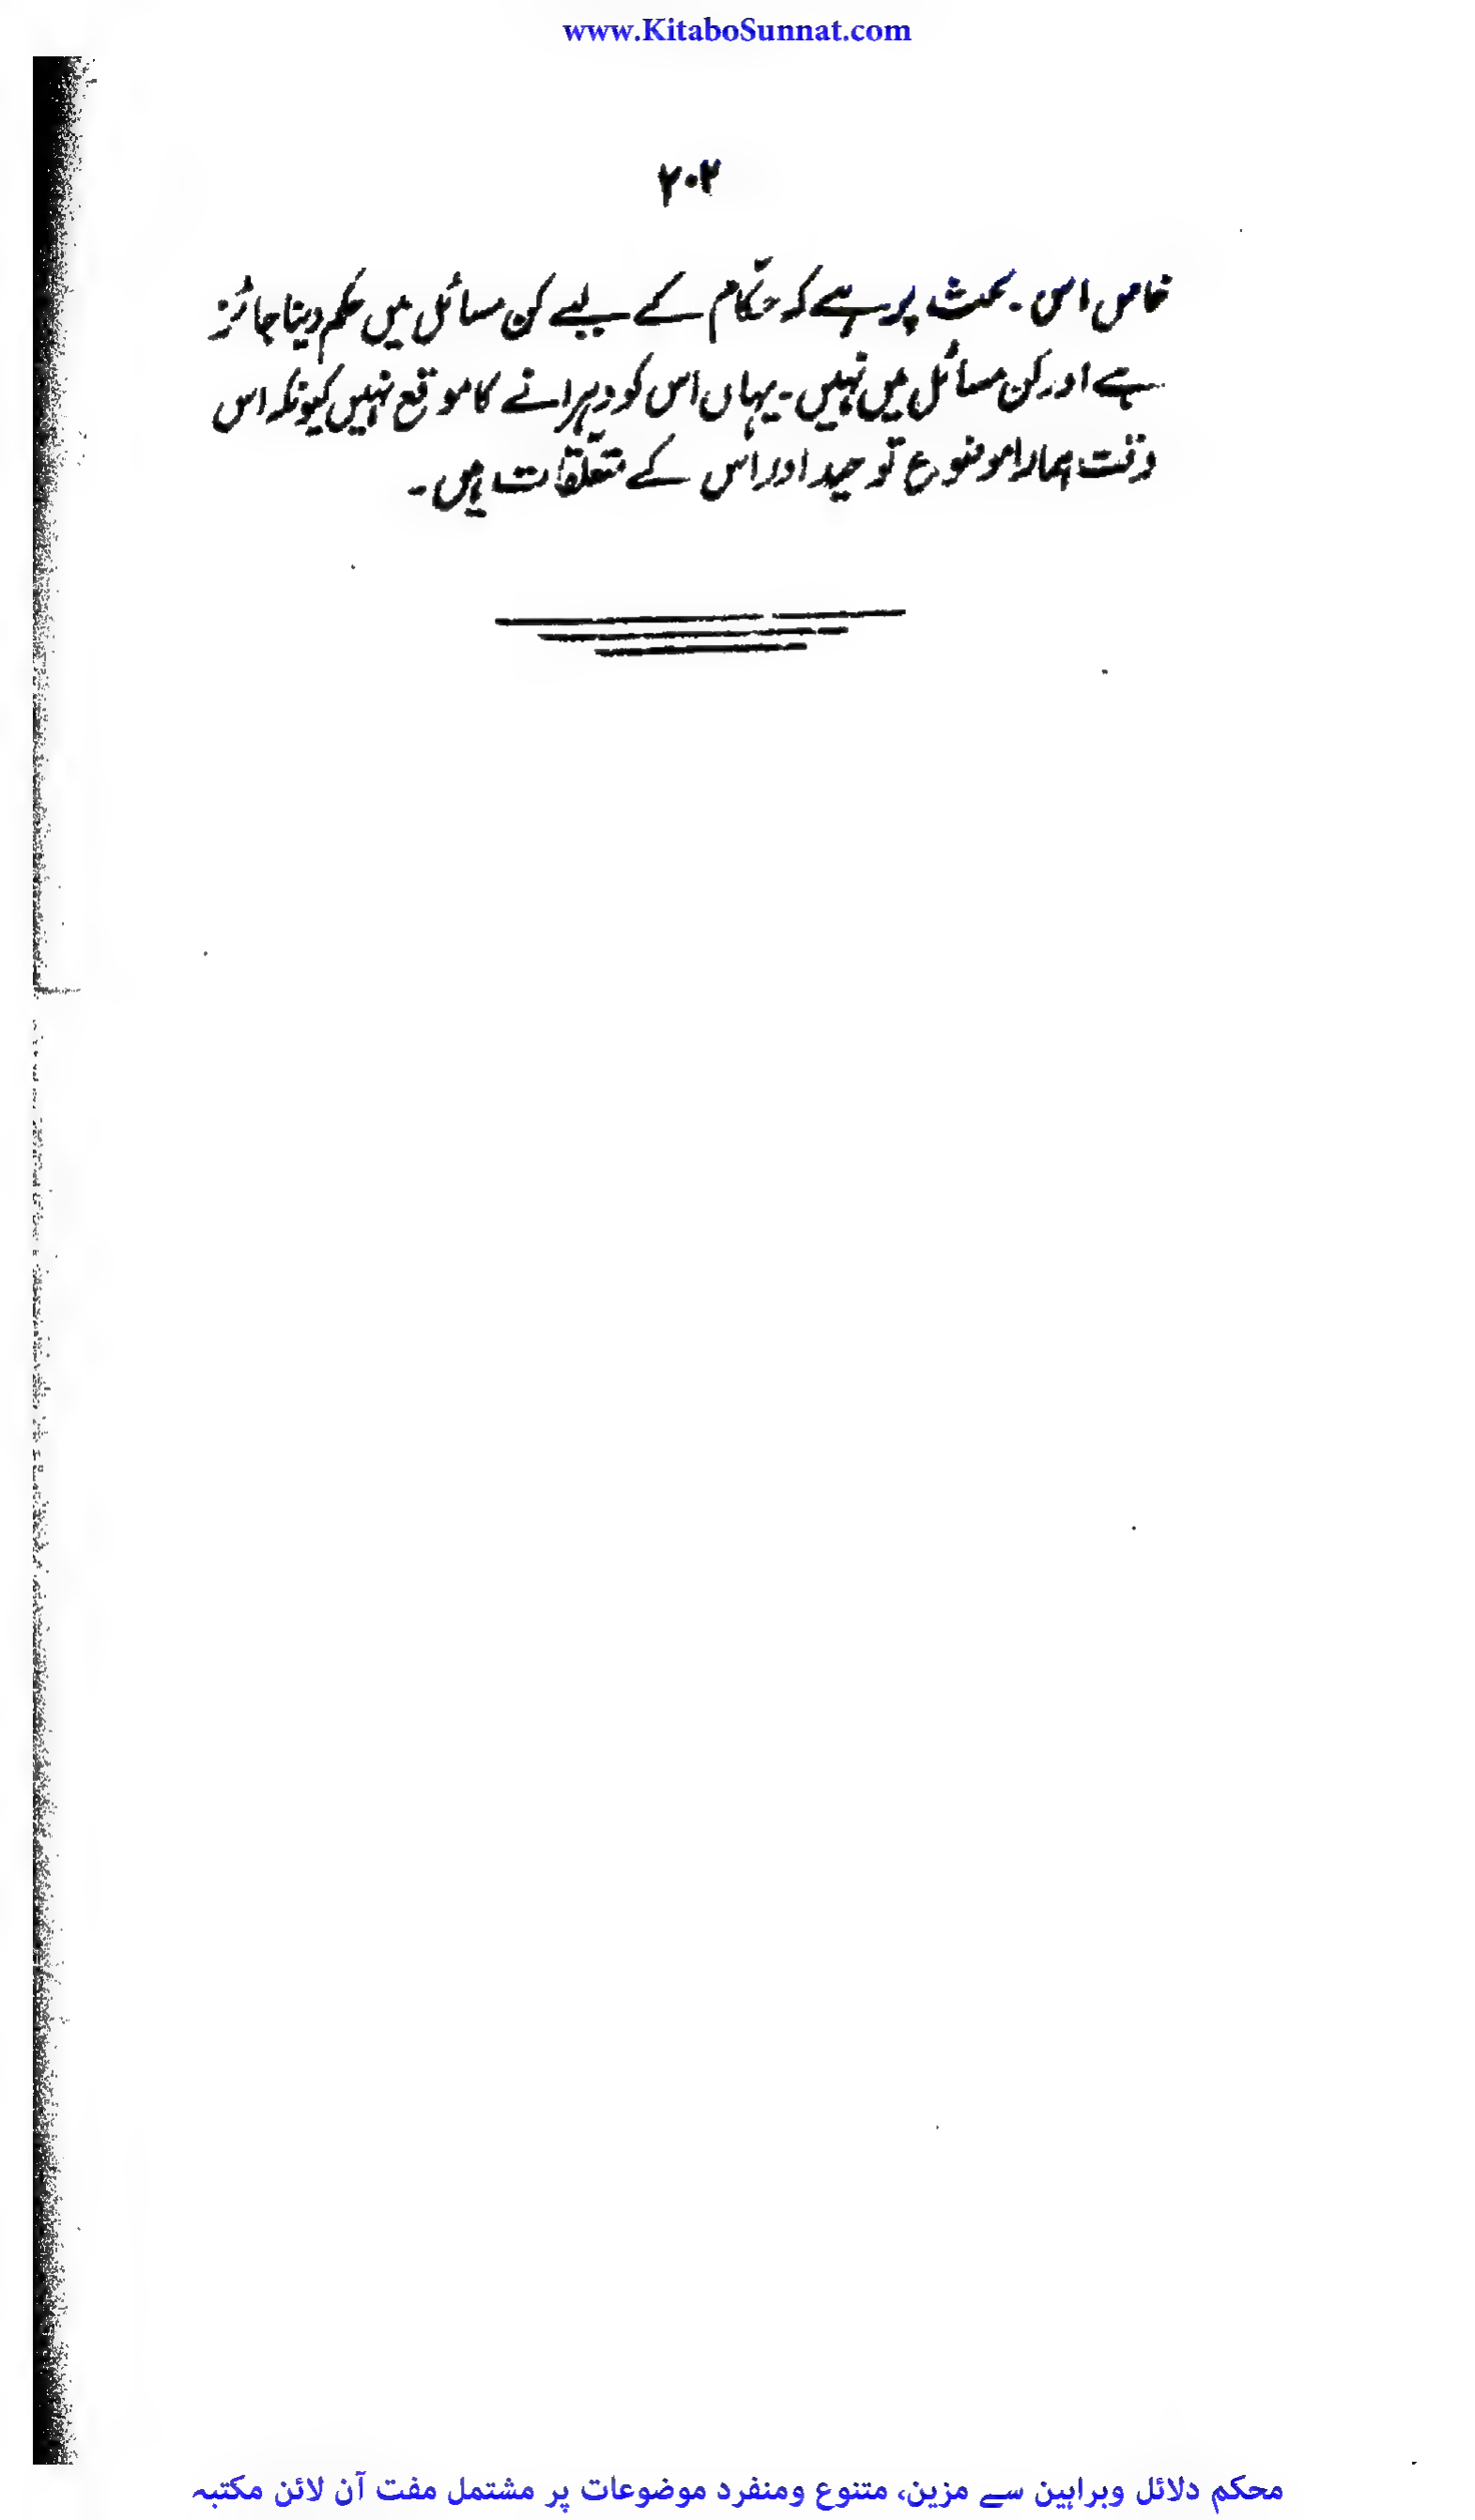 www.KitaboSunnat.com
۲۰۲
خاص اس بحث پر ہے کہ حکّام کے لیے کن مسائل میں حکم دینا جائز
ہے اور کن مسائل میں نہیں۔ یہاں اس کو دہرانے کا موقع نہیں کیونکہ اس
وقت ہمارا موضوع توحید اور اس کے متعلّقات ہیں۔
محکم دلائل وبراہین سے مزین، متنوع ومنفرد موضوعات پر مشتمل مفت آن لائن مکتبہ